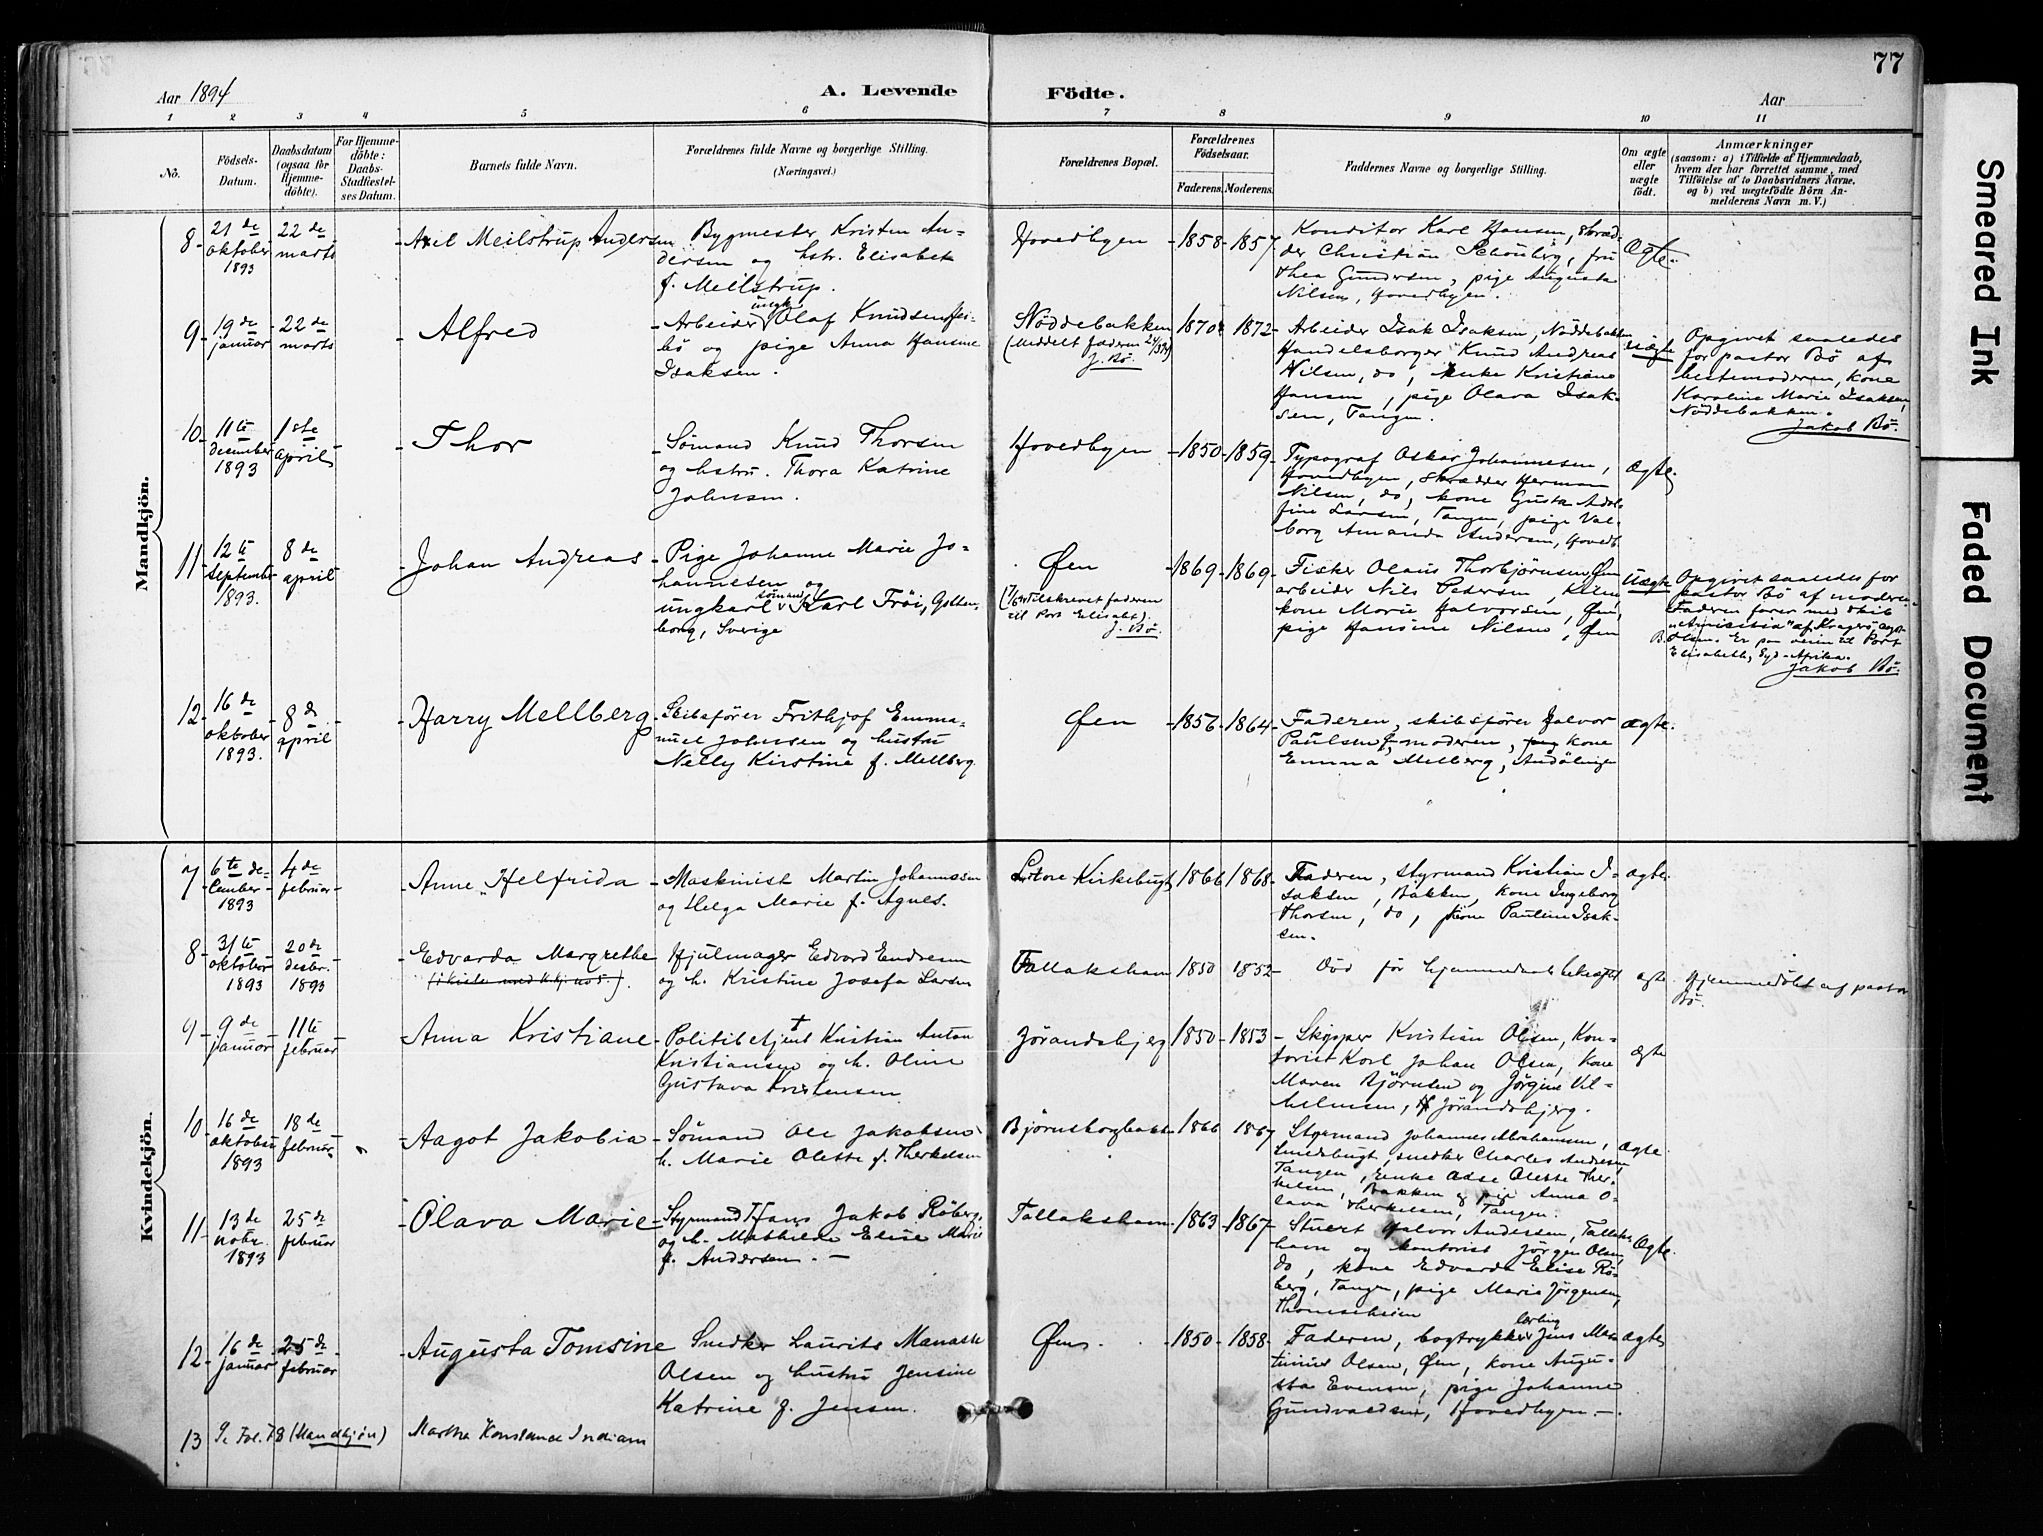 77
Aar 1894
A. Levende Födte.
Aar
1 2 3 4 5 6 7 8 9 10 11
No.
Födsels-Datum.
Daabsdatum (ogsaa for Hjemme-döbte).
For Hjemme-döbte: Daabs-Stadfæstel-ses Datum.
Barnets fulde Navn.
Forældrenes fulde Navne og borgerlige Stilling. (Næringsvei.)
Forældrenes Bopæl.
Forældrenes Födselsaar.
Faderens. Moderens.
Faddernes Navne og borgerlige Stilling.
Om ægte eller uægte födt.
Anmærkninger
(saasom: a) i Tilfælde af Hjemmedaab,
hvem der har forrettet samme, med
Tilföielse af to Daabsvidners Navne,
og b) ved uægtefödte Börn An-
melderens Navn m. V.)
Mandkjön.
8 21de oktober 1893 22de marts
Axel Meilstrup Andersen
Bygmester Kristen An-
dersen og hstr. Elisabeth
f. Meilstrup.
Hovedbyen 1858 1857
Konditor Karl Hansen, skræd-
der Christian Schouberg, fru
Thea Gundersen, pige Augusta
Nilsen, Hovedbyen.
Ægte.
9 19de januar 22de marts
Alfred
Arbeider ungk. Olaf Knudsen
og pige Anna Hansine
Isaksen.
Nöddebakken
J. Bö.
1870 1872
Arbeider Isak Isaksen, Nöddebakken
Handelsborger Knud Andreas
Nilsen, do, enke Kristiane
Hansen, pige Olava Isak-
sen, Tangen.
uægte
Opgivet saaledes
for pastor Bö af
bestemoderen, kone
Karoline Marie Isaksen,
Nöddebakken.
Jakob Bö.
10 11te desember 1893 1ste april
Thor
Sömand Knud Thorsen
og hstru. Thora Katrine
Johnsen.
Hovedbyen 1850 1859
Typograf Oskar Johannesen,
Hovedbyen, skrædder Herman
Nilsen, do, kone Gusta Adol-
fine Larsen, Tangen, pige Val-
borg Amanda Andersen, Hovedb.
ægte.
11 12te september 1893. 8de april
Johan Andreas
Pige Johanne Marie Jo-
hannesen og
ungkarl sömand Karl Fröi, Gotten-
borg, Sverige
Öen
(7/6 94 tilskrevet faderen
til Port Elisabet)
J. Bö.
1869 1869
Fisker Olaus Thorbjörnsen, Öen
arbeider Nils Pedersen, Kilen
kone Marie Halvorsen, Öen,
pige Hansine Nilsen, Öen
Uægte
Opgivet saaledes for
pastor Bö af moderen.
Faderen farer med skib
"Amicitia" af Kragerö
Olsen. Er paa veien til Port
Elisabeth, Syd-Afrika.
Jakob Bö.
12 16de oktober 1893. 8de april
Harry Mellberg
Skibsförer Frithjof Emma-
nuel Johnsen og hustru
Nelly Kirstine f. Mellberg.
Öen 1856 1864
Faderen, skibsförer Halvor
Paulsen, moderen, kone
Emma Melberg,
ægte.
Kvindekjön.
7 6te december 1893 4de februar
Anne Helfrida
Maskinist Martin Johannssen
og Helga Marie f. Agnes.
Store Kirkebugt 1866 1868
Faderen, styrmand Kristian I-
saksen, Bakken, kone Ingeborg
Thorsen, do, kone Pauline Isak-
sen.
ægte.
8 31te oktober 1893 20de desbr. 1893
Edvarda Margrethe
Hjulmager Edvard Endresen
og h. Kristine Josefa Larsen
Tallakshavn 1850 1852
Död för hjemmedaab bekræftet
ægte
Hjemmedöbt af pastor
Bö.
9 9de januar 11te februar
Anna Kristiane
Politibetjent Kristian Anton
Kristiansen og h. Oline
Gustava Kristensen
Jörandsbjerg 1850 1853
Skipper Kristian Olsen, Kon-
torist Karl Johan Olsen, kone
Maren Björnsen og Jörgine Vil-
helmsen, Jörandsbjerg.
ægte
10 16de oktober 1893 18de februar
Aagot Jakobia
Sömand Ole Jakobsen
h. Marie Olette f. Therkelsen
1866 1867
Styrmand Johannes Abrahamsen,
Smedsbugt, snedker Charles Andersen
Tangen, enke Adse Olette Ther-
kelsen, Bakken & pige Anna O-
lava Therkelsen, Tangen.
ægte.
11 13de novbr. 1893 25de februar
Olava Marie
Styrmand Hans Jakob Röberg,
og h. Mathilde Elise Marie
f. Andersen.
Tallakshavn 1863 1867
Stuert Halvor Andersen, Tallaks-
havn og kontorist Jörgen Olsen,
do, kone Edvarda Elise Rö-
berg, Tangen, pige Marie Jörgensen,
Thomesheien
Ægte.
12 16de januar 25de februar
Augusta Tomsine
Snedker Laurits Manasse
Olsen og hustru Jensine
Katrine f. Jensen.
Öen. 1850 1858
Faderen, bogtrykkerlærling Jens Mar-
tinius Olsen, Öen, kone Augu-
sta Evensen, pige Johanne
Gundvaldsen, Hovedbyen.
ægte
13 Se Fol. 78 (Mandkjön) Martha Konstance Indiam
Smeared Ink
Faded Document